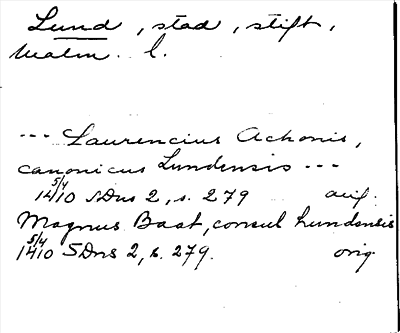 Lund, stad, stift,
Malm. l.
--- Laurencius Achonis,
canonicus Lundensis ---
5/4
1410 SDns 2, s. 279 avs.
Magnus Baat, consul Lundensis
5/4
1410 SDns 2, s. 279. orig.